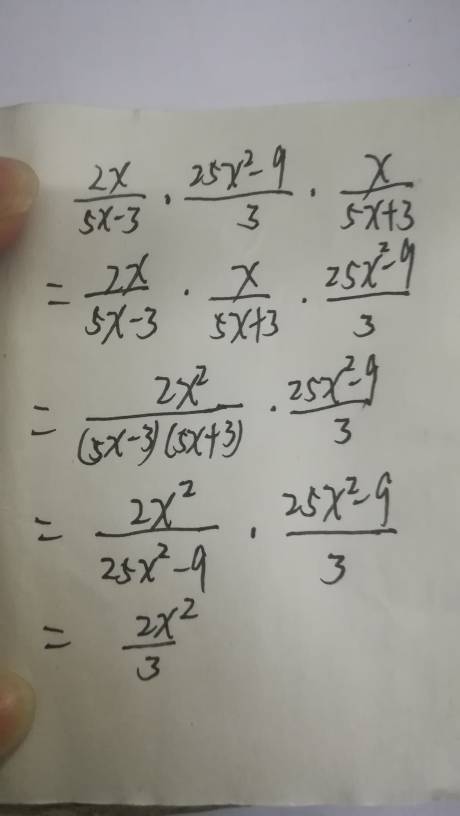 2x/(5x-3) · (25x²-9)/3 · x/(5x+3)
= 2x/(5x-3) · x/(5x+3) · (25x²-9)/3
= 2x²/((5x-3)(5x+3)) · (25x²-9)/3
= 2x²/(25x²-9) · (25x²-9)/3
= 2x²/3